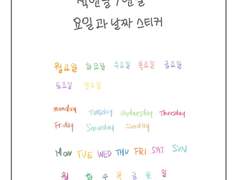 요일과 날짜 스티커
월요일 화요일 수요일 목요일 금요일
토요일 일요일
monday Tuesday Wednesday Thursday
Friday Saturday Sunday
MON TUE WED THU FRI SAT SUN
월 화 수 목 금 토 일